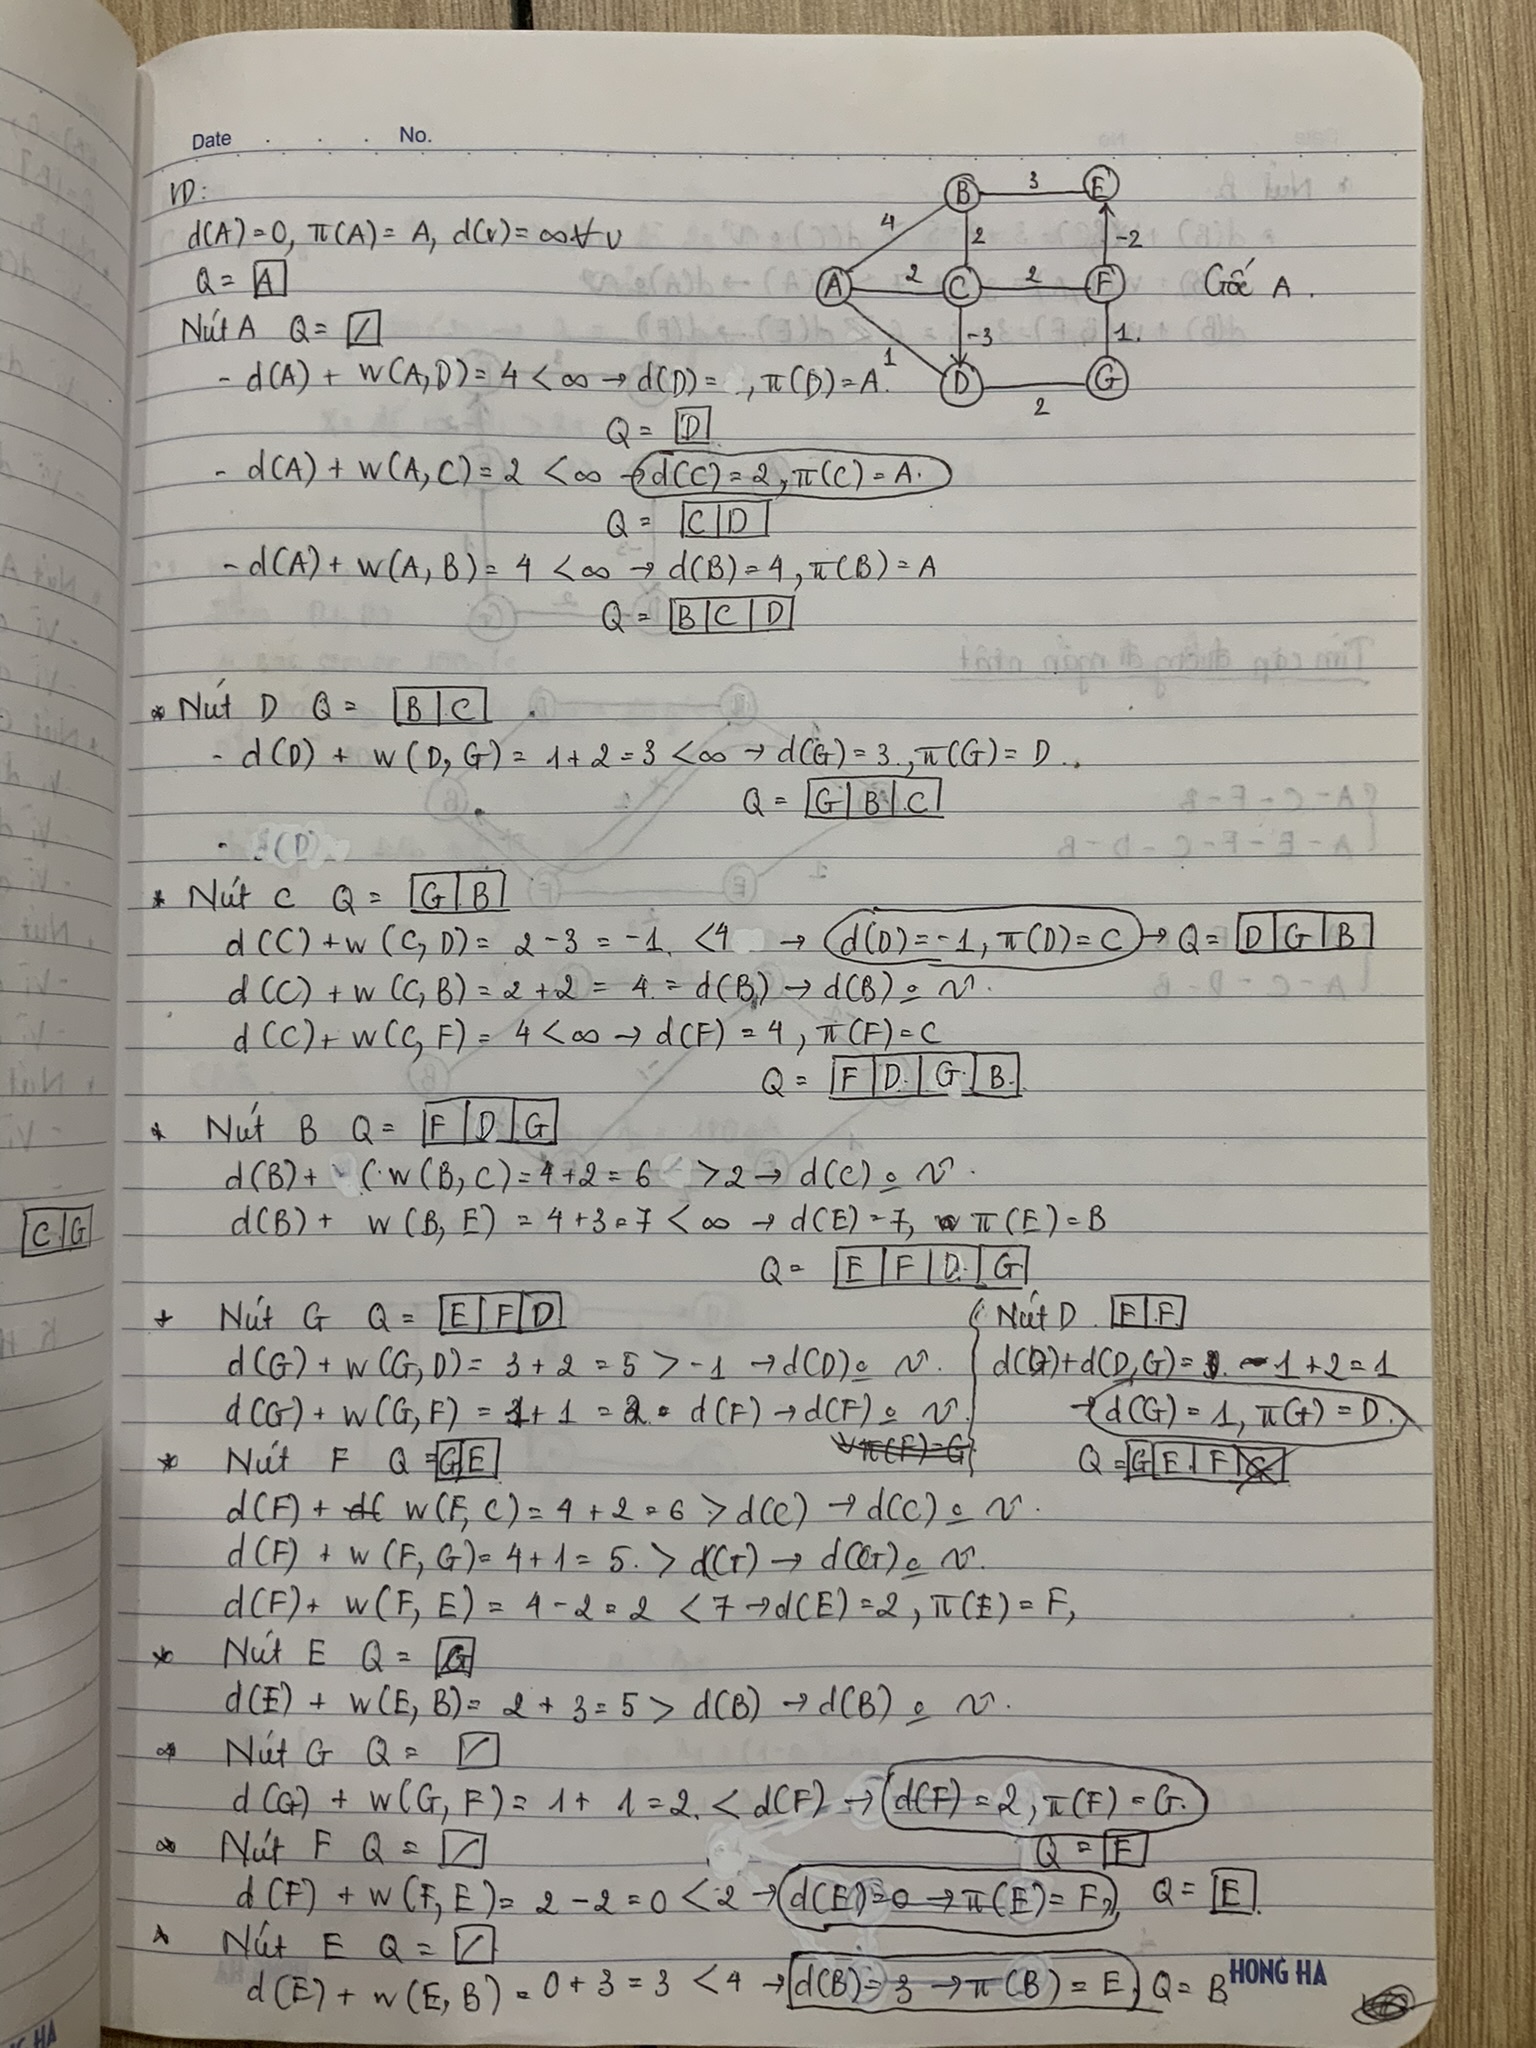 Date . . . No.
VD:
d(A)=0, π(A)=A, d(v)=∞ ∀ v
Q = A
Nút A Q = /
- d(A) + w(A,D) = 4 < ∞ → d(D) = , π(B) = A.
Q = D
- d(A) + w(A,C) = 2 < ∞ → d(C) = 2, π(C) = A.
Q = C|D
- d(A) + w(A,B) = 4 < ∞ → d(B) = 4, π(B) = A
Q = B|C|D
B 3 E
4 2 -2
A 2 C 2 F Gốc A.
1 -3 1.
D 2 G
* Nút D Q = B|C
- d(D) + w(D,G) = 1+2 = 3 < ∞ → d(G) = 3, π(G) = D.
Q = G|B|C
- (D)
* Nút C Q = G|B
d(C) + w(C,D) = 2-3 = -1. < 4 → d(D) = -1, π(D) = C → Q = D|G|B
d(C) + w(C,B) = 2+2 = 4 = d(B) → d(B)
d(C) + w(C,F) = 4 < ∞ → d(F) = 4, π(F) = C
Q = F|D|G|B
* Nút B Q = F|D|G
d(B) + ( w(B,C) = 4+2 = 6 > 2 → d(C)
d(B) + w(B,E) = 4+3 = 7 < ∞ → d(E) = 7, π(E) = B
Q = E|F|D|G
+ Nút G Q = E|F|D
d(G) + w(G,D) = 3+2 = 5 > -1 → d(D)
d(G) + w(G,F) = + 1 = 2 = d(F) → d(F)
π(F)=G
Nút D E|F
d(D)+d(D,G) = -1+2 = 1
→ d(G) = 1, π(G) = D.
Q = G|E|F|G
* Nút F Q = G|E
d(F) + w(F,C) = 4+2 = 6 > d(C) → d(C)
d(F) + w(F,G) = 4+1 = 5. > d(G) → d(G)
d(F) + w(F,E) = 4-2 = 2 < 7 → d(E) = 2, π(E) = F,
* Nút E Q = G
d(E) + w(E,B) = 2+3 = 5 > d(B) → d(B)
* Nút G Q = /
d(G) + w(G,F) = 1+1 = 2. < d(F) → d(F) = 2, π(F) = G.
* Nút F Q = / Q = F
d(F) + w(F,E) = 2-2 = 0 < 2 → d(E) = 0 → π(E) = F, Q = E
* Nút E Q = /
d(E) + w(E,B) = 0+3 = 3 < 4 → d(B) = 3 → π(B) = E, Q = B
HONG HA
C|G